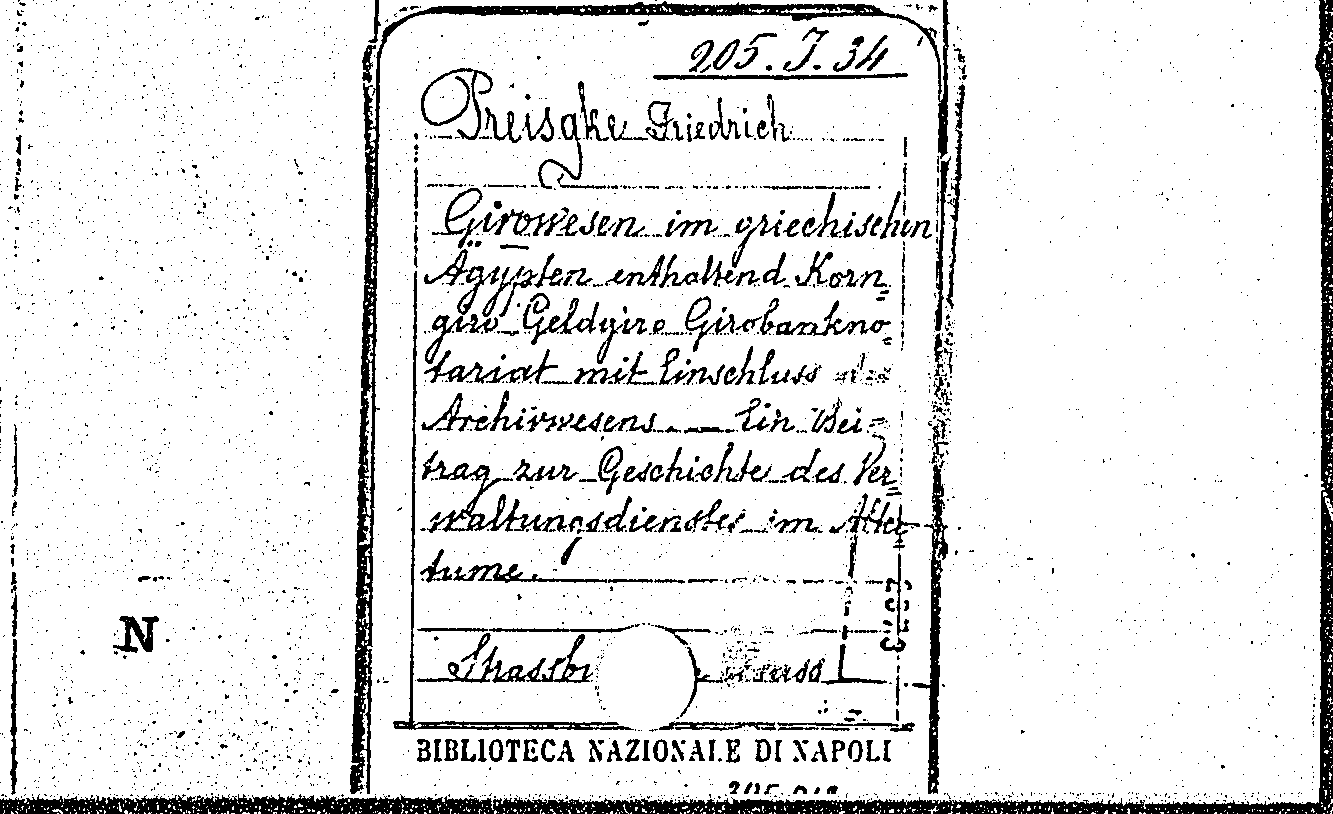 205. J. 34
Preisgke Friedrich
Girowesen im griechischen
Ägypten enthaltend Korn=
giro Geldgiro Girobankno=
tariat mit Einschluss des
Archivwesens. — Ein Bei=
trag zur Geschichte des Ver=
waltungsdienstes im Alter=
tume.
N
Strassbu
BIBLIOTECA NAZIONALE DI NAPOLI